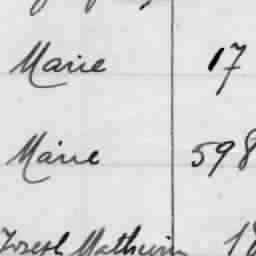 Marie 17
Marie 598
Joseph Mathurin